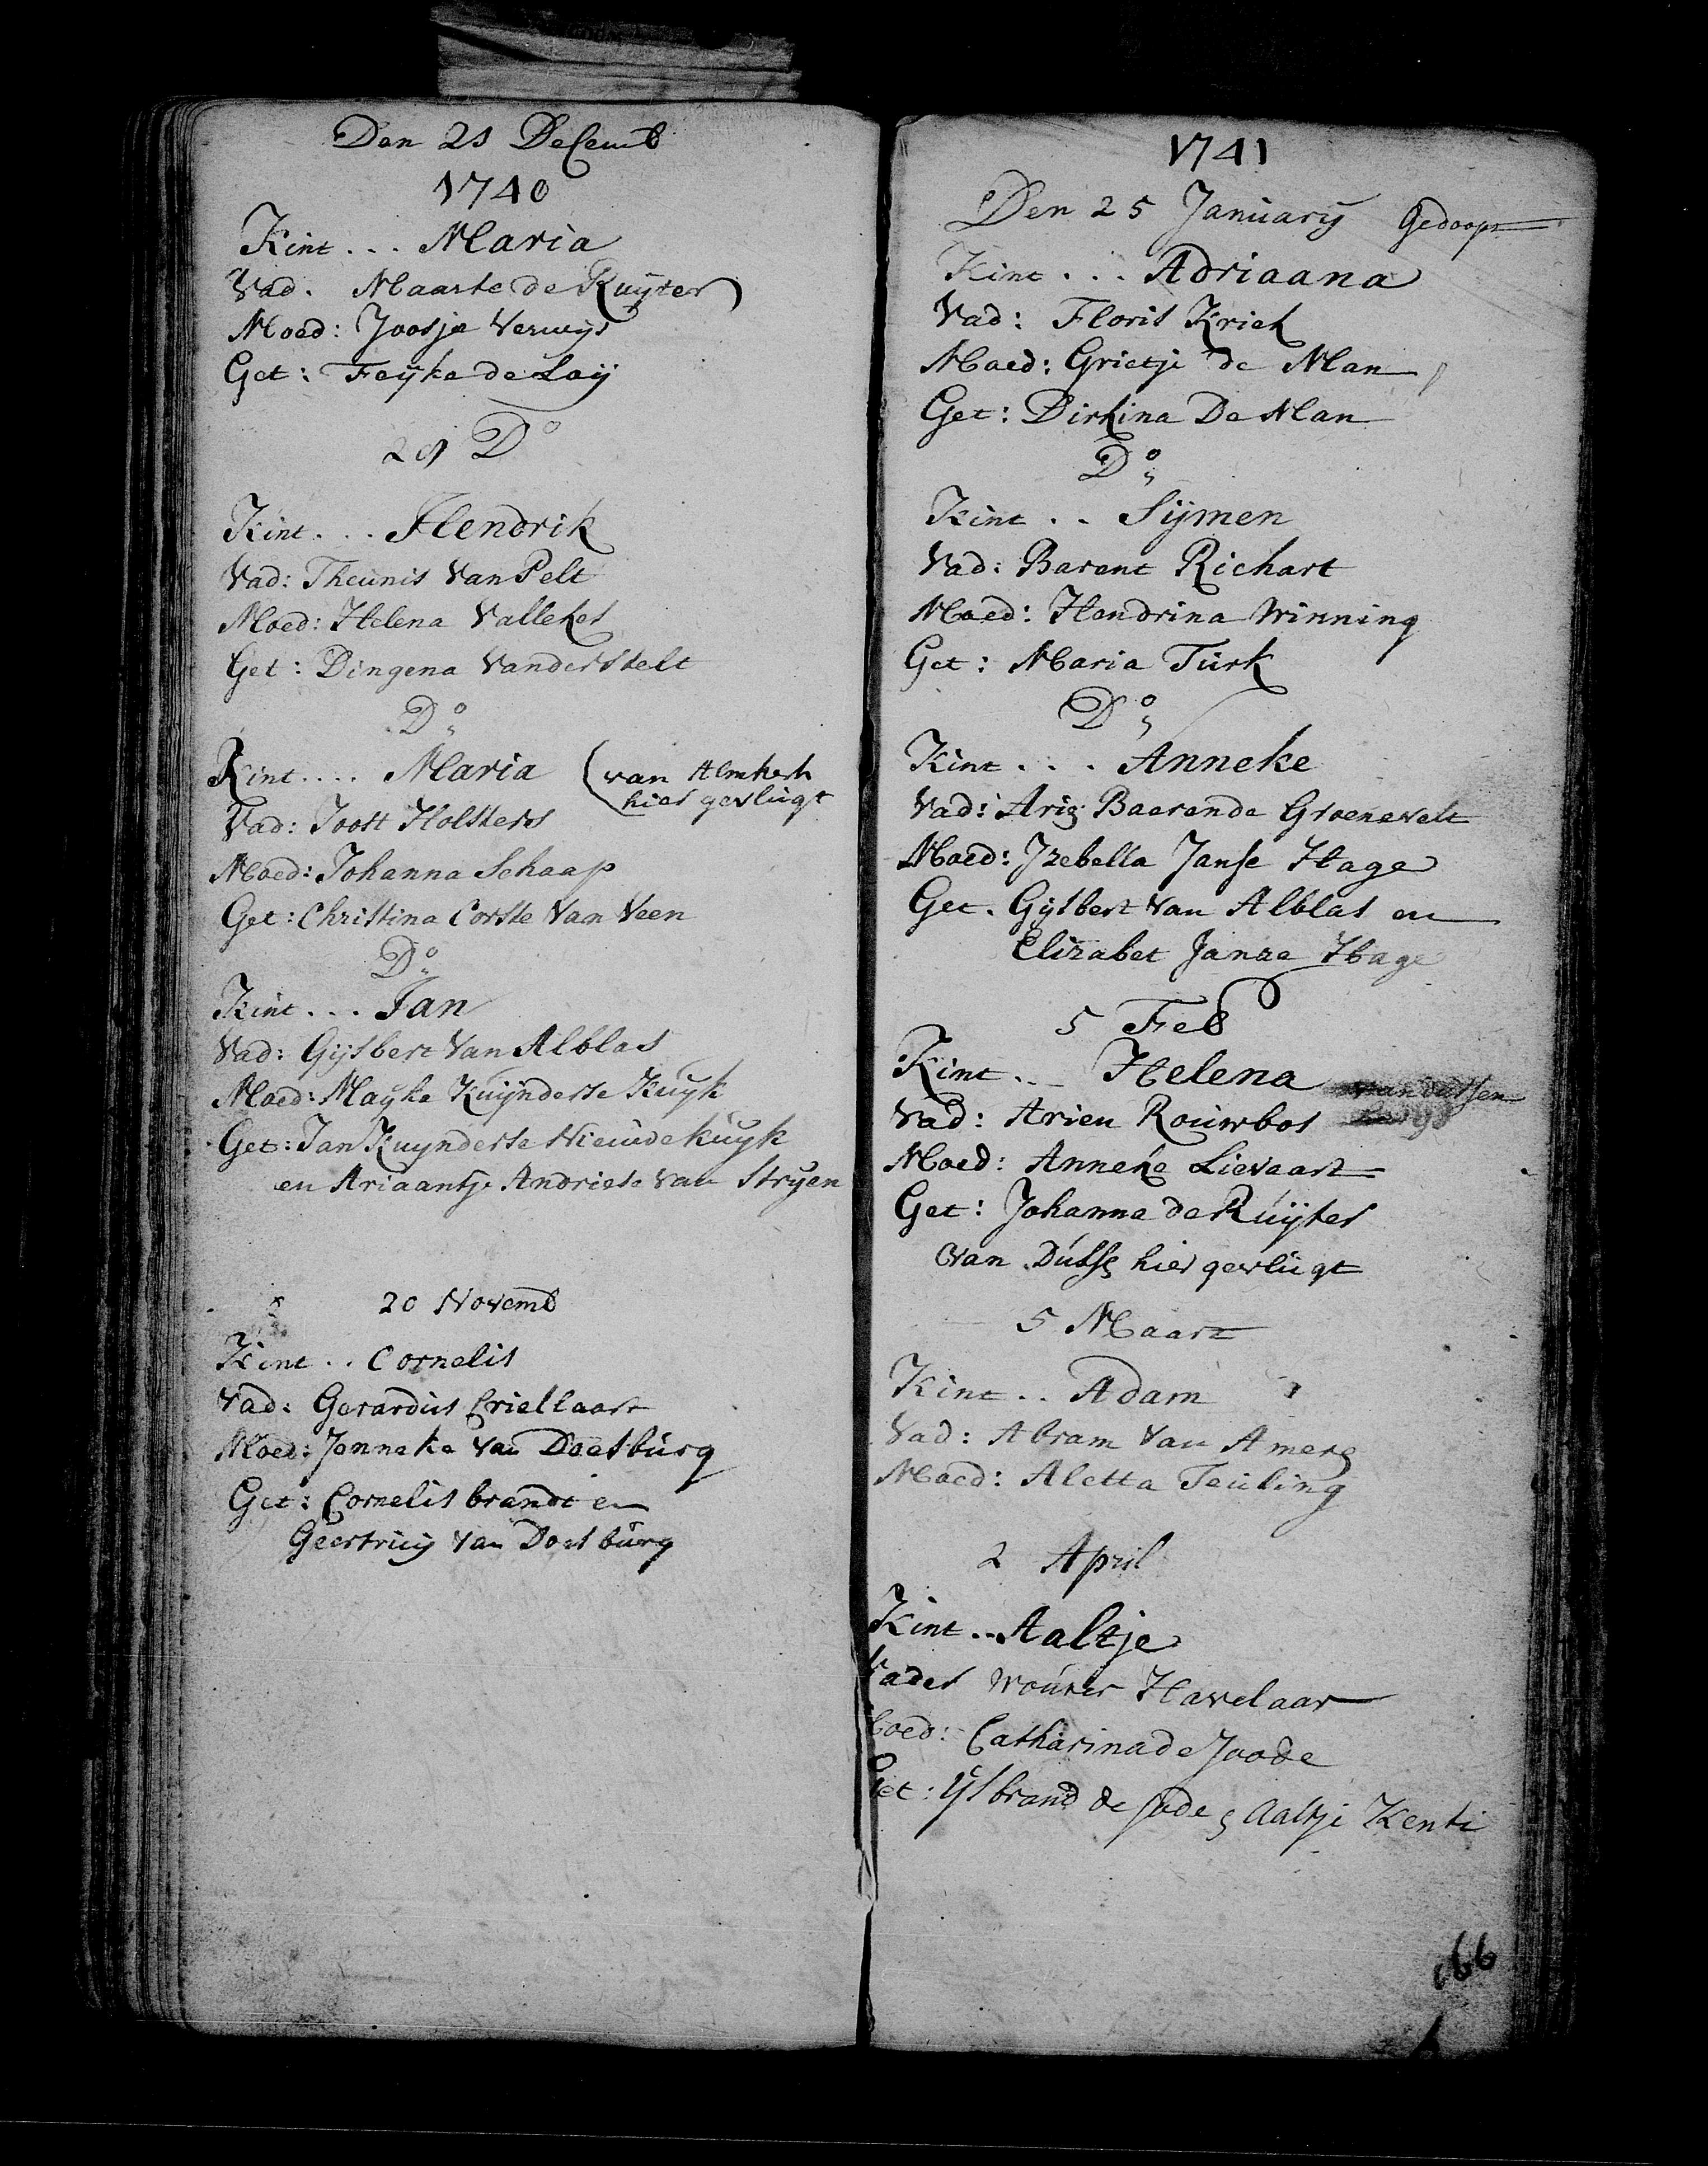 Den 21 Decemb
1740
Kint ... Maria
Vad. Maarte de Ruyter
Moed: Joosje Verwys
Get: Feyke de Loy
29 Do
Kint ... Hendrik
Vad: Theunis Van Pelt
Moed: Helena Vallekes
Get: Dingena Vanderstelt
Do
Kint .... Maria (van Almkerk
hier gevlugt
Vad: Joost Holsters
Moed: Johanna Schaap
Get: Christina Corste Van Veen
Do
Kint ... Jan
Vad: Gysbert Van Alblas
Moed: Mayke Kuynderse Kuyk
Get: Jan Kuynderse Nieuwdekuyk
en Ariaantje Andriese van Stryen
20 Novemb
Kint .. Cornelis
Vad: Gerardus Criellaart
Moed: Jenneke van Doesburg
Get: Cornelis brandt en
Geertruy van Doesburg
1741
Den 25 January Gedoopt
Kint ... Adriaana
Vad: Floris Kriek
Moed: Grietje de Man
Get: Dirkina De Man
Do
Kint .. Symen
Vad: Barent Richart
Moed: Hendrina Winning
Get: Maria Turk
Do
Kint ... Anneke
Vad: Arig Baerende Groenevelt
Moed: Jzebella Janse Hage
Get. Gysbert van Alblas en
Elizabet Janze Hage
5 Feb
Kint ... Helena
Vad: Arien Rouwbos
Moed: Anneke Lievaart
Get: Johanna de Ruyter
van Dusse hier gevlugt
5 Maart
Kint .. Adam
Vad: Abram van Amerg
Moed: Aletta Teuling
2 April
Kint .. Aaltje
Vader Wouter Havelaar
Moed: Catharina de Joode
Get: Ysbrand de Jode & Aaltje Kenti
166